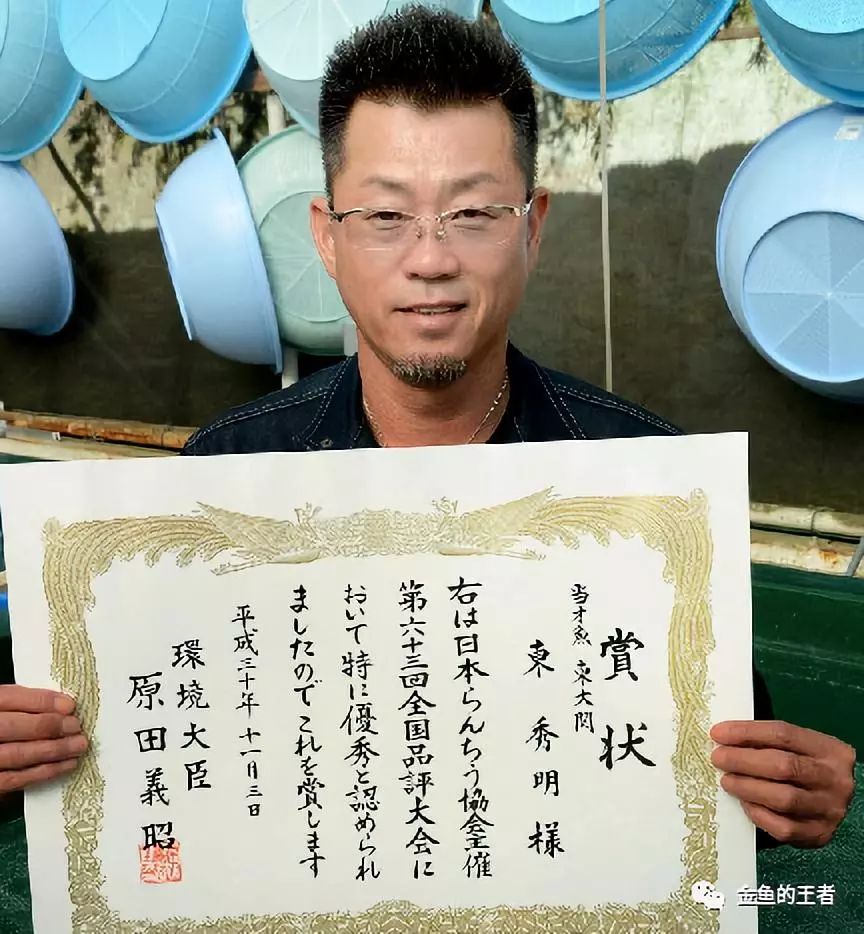 賞状
当才魚 東大関
東 秀明 様
右は日本らんちう協会主催
第六十三回全国品評大会に
おいて特に優秀と認められ
ましたのでこれを賞します
平成三十年 十一月三日
環境大臣
原田義昭
金鱼的王者